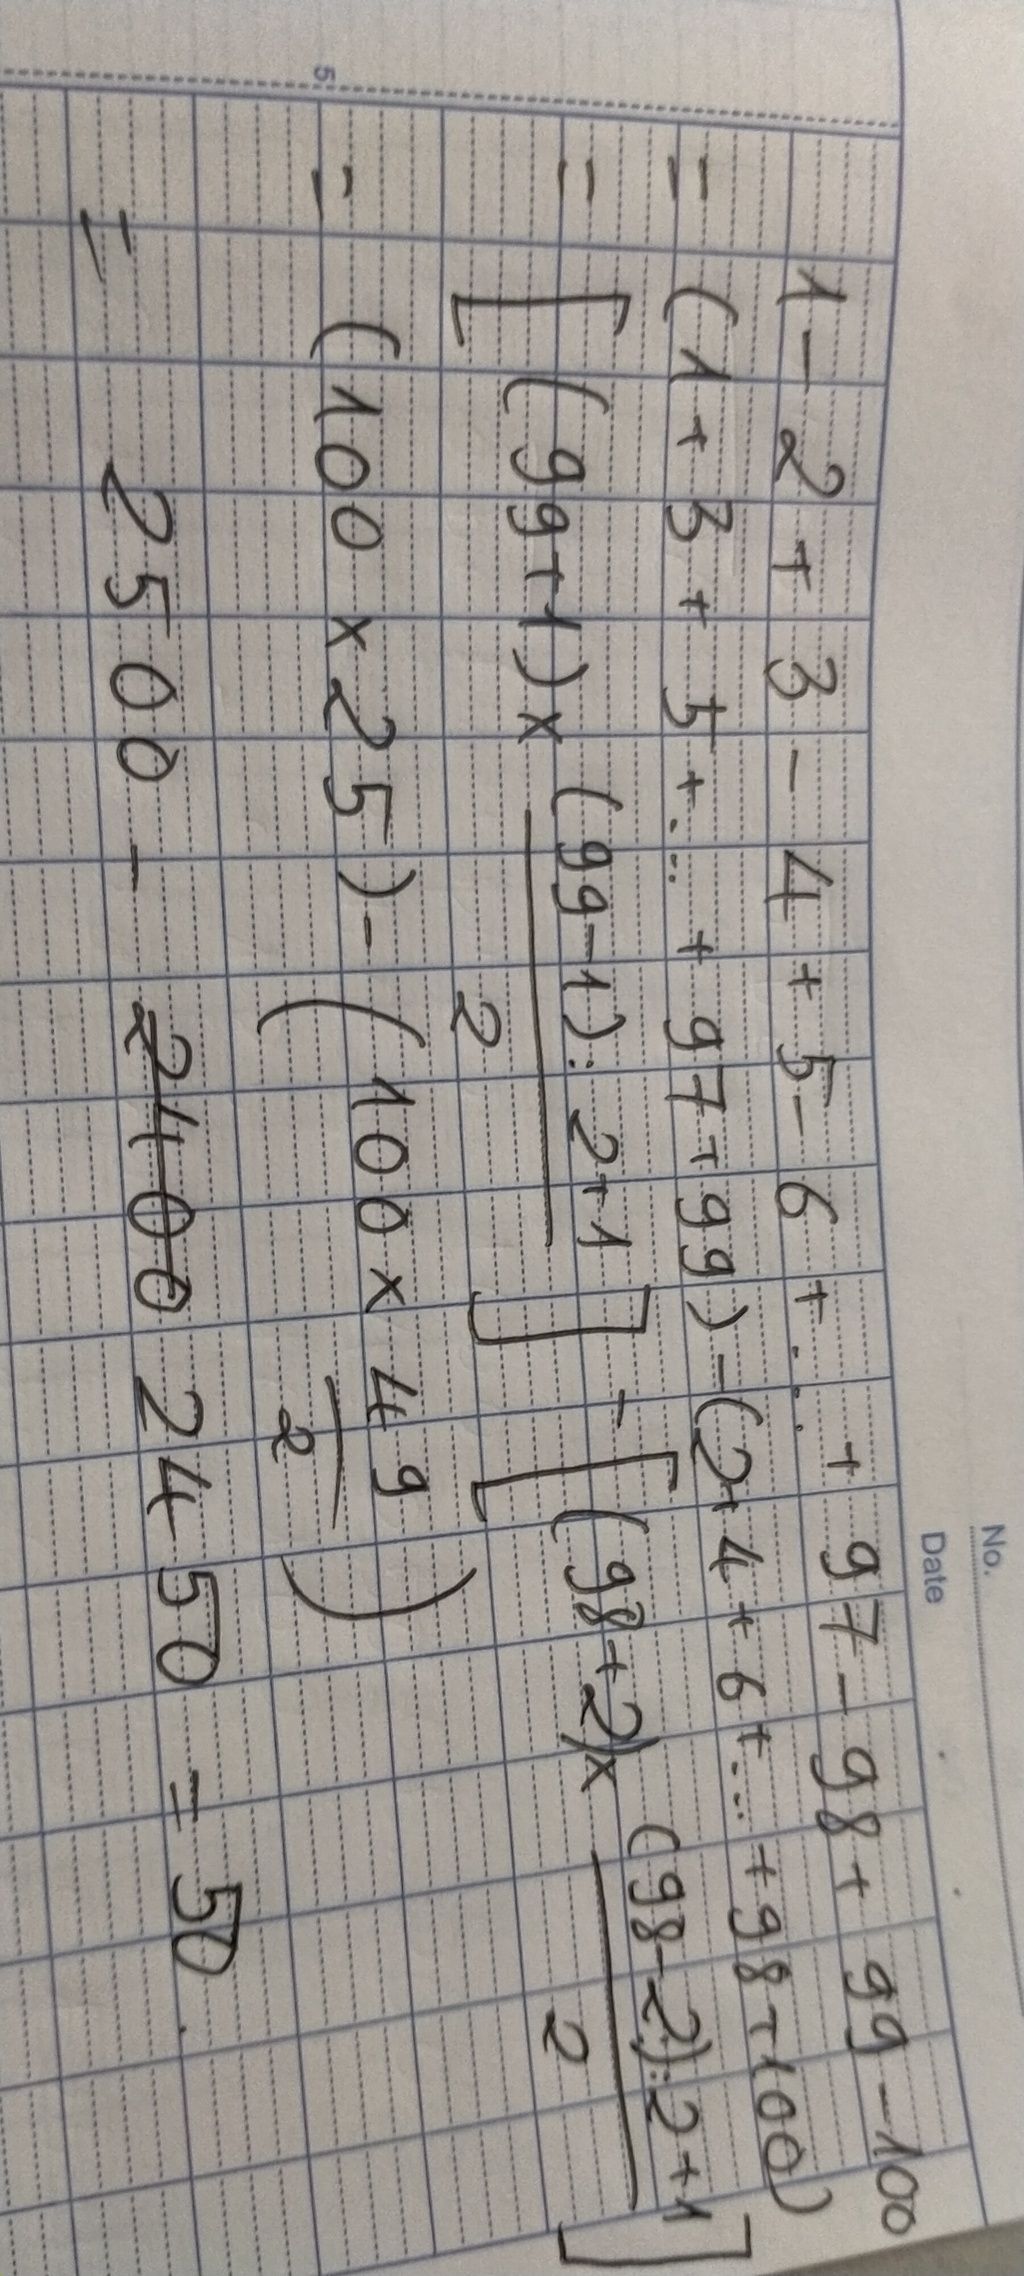 No.
Date
1 - 2 + 3 - 4 + 5 - 6 + ... + 97 - 98 + 99 - 100
= (1 + 3 + 5 + ... + 97 + 99) - (2 + 4 + 6 + ... + 98 + 100)
= [(99 + 1) × (99 - 1) : 2 + 1 / 2] - [(98 + 2) × (98 - 2) : 2 + 1 / 2]
= (100 × 25) - (100 × 49 / 2)
5
= 2500 - 2400 2450 = 50.